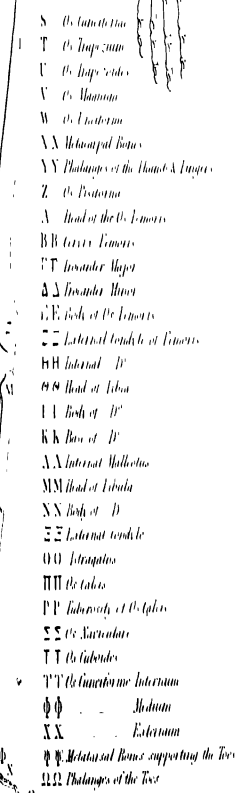 S Os Cuneiforme
T Os Trapezium
U Os Trapezoides
V Os Magnum
W Os Unciforme
XX Metacarpal Bones
YY Phalanges of the Thumb & Fingers
Z Os Pisiforme
Α Head of the Os Femoris
ΒΒ Cervix Femoris
ΓΓ Trocanter Major
ΔΔ Trocanter Minor
ΕΕ Body of Os Femoris
ΖΖ External Condyle of Femoris
ΗΗ Internal D°
ΘΘ Head of Tibia
ΙΙ Body of D°
ΚΚ Base of D°
ΛΛ Internal Malleolus
ΜΜ Head of Fibula
ΝΝ Body of D
ΞΞ External condyle
ΟΟ Astragalus
ΠΠ Os Calcis
ΡΡ Tuberosity of Os Calcis
ΣΣ Os Naviculare
ΤΤ Os Cuboides
ϒϒ Os Cuneiforme Internum
ΦΦ - - Medium
ΧΧ - - Externum
ΨΨ Metatarsal Bones supporting the Toes
ΩΩ Phalanges of the Toes